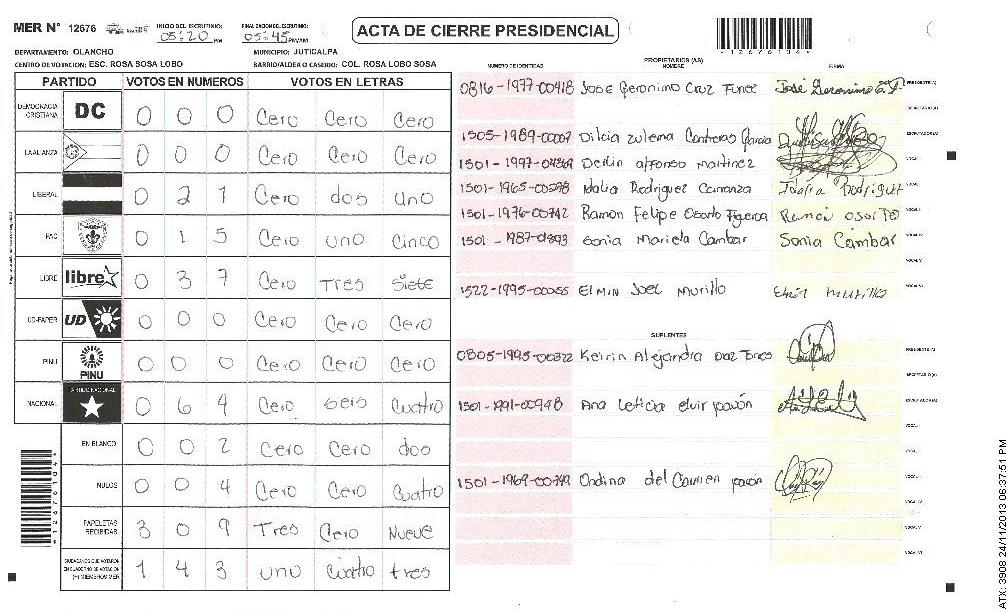 MER Nº 12676 INICIO DEL ESCRUTINIO: 05:20 PM FINALIZACION DEL ESCRUTINIO: 05:45 PM/AM
ACTA DE CIERRE PRESIDENCIAL
*12676104*
DEPARTAMENTO: OLANCHO MUNICIPIO: JUTICALPA
CENTRO DE VOTACION: ESC. ROSA SOSA LOBO BARRIO/ALDEA O CASERIO: COL. ROSA LOBO SOSA
PARTIDO VOTOS EN NUMEROS VOTOS EN LETRAS
DEMOCRACIA CRISTIANA DC 0 0 0 Cero Cero Cero
LA ALIANZA 0 0 0 Cero Cero Cero
LIBERAL 0 2 1 Cero dos uno
PAC 0 1 5 Cero uno cinco
LIBRE libre 0 3 7 Cero Tres Siete
UD-FAPER UD 0 0 0 Cero Cero Cero
PINU PINU 0 0 0 Cero Cero Cero
NACIONAL PARTIDO NACIONAL 0 6 4 Cero seis Cuatro
EN BLANCO 0 0 2 Cero Cero dos
NULOS 0 0 4 Cero Cero Cuatro
PAPELETAS RECIBIDAS 3 0 9 Tres Cero Nueve
CIUDADANOS QUE VOTARON EN CUADERNO DE VOTACION (+) MIEMBROS MER 1 4 3 uno Cuatro tres
PROPIETARIOS (AS)
NUMERO DE IDENTIDAD NOMBRE FIRMA
0816-1977-00418 Jose Geronimo Cruz Funez José Geronimo C. F. PRESIDENTE(A)
SECRETARIO(A)
1505-1989-00007 Dilcia Zulema Contreras Garcia ESCRUTADOR(A)
1501-1997-04269 Deilin alfonso martinez VOCAL I
1501-1965-00298 Idalia Rodriguez Carranza Idalia Rodriguez VOCAL II
1501-1976-00742 Ramon Felipe Osorto Figueroa Ramon Osorto VOCAL III
1501-1987-01893 Sonia Mariela Cambar Sonia Cambar VOCAL IV
VOCAL V
1522-1995-00055 Elmin Joel Murillo Elmin murillo VOCAL VI
SUPLENTES
0805-1995-00322 Keirin Alejandra Diaz Torres PRESIDENTE (A)
SECRETARIO (A)
1501-1991-00948 Ana Leticia elvir pavón ESCRUTADOR(A)
VOCAL I
VOCAL II
1501-1969-00749 Ondina del Carmen pavón VOCAL III
VOCAL IV
VOCAL V
VOCAL VI
*12676104*
ATX: 3908 24/11/2013 06:37:51 PM